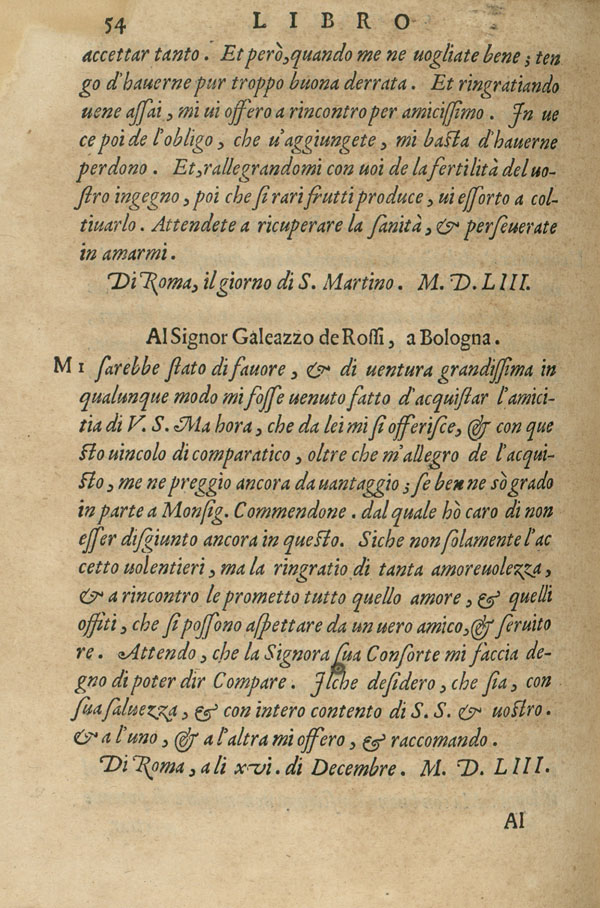 54 LIBRO
accettar tanto. Et però, quando me ne uogliate bene; ten
go d'hauerne pur troppo buona derrata. Et ringratiando
uene aſſai, mi ui offero a rincontro per amiciſſimo. In ue
ce poi de l'obligo, che u'aggiungete, mi baſta d'hauerne
perdono. Et, rallegrandomi con uoi de la fertilità del uo-
ſtro ingegno, poi che ſi rari frutti produce, ui eſſorto a col-
tiuarlo. Attendete a ricuperare la ſanità, & perſeuerate
in amarmi.
Di Roma, il giorno di S. Martino. M. D. LIII.
Al Signor Galeazzo de Roſſi, a Bologna.
MI ſarebbe ſtato di fauore, & di uentura grandiſſima in
qualunque modo mi foſſe uenuto fatto d'acquiſtar l'amici-
tia di V. S. Ma hora, che da lei mi ſi offeriſce, & con que
ſto uincolo di comparatico, oltre che m'allegro de l'acqui-
ſto, me ne preggio ancora da uantaggio; ſe ben ne sò grado
in parte a Monſig. Commendone. dal quale hò caro di non
eſſer diſgiunto ancora in queſto. Siche non ſolamente l'ac
cetto uolentieri, ma la ringratio di tanta amoreuolezza,
& a rincontro le prometto tutto quello amore, & quelli
offiti, che ſi poſſono aſpettare da un uero amico, & ſeruito
re. Attendo, che la Signora ſua Conſorte mi faccia de-
gno di poter dir Compare. Ilche deſidero, che ſia, con
ſua ſaluezza, & con intero contento di S. S. & uoſtro.
& a l'uno, & a l'altra mi offero, & raccomando.
Di Roma, a li xvi. di Decembre. M. D. LIII.
Al